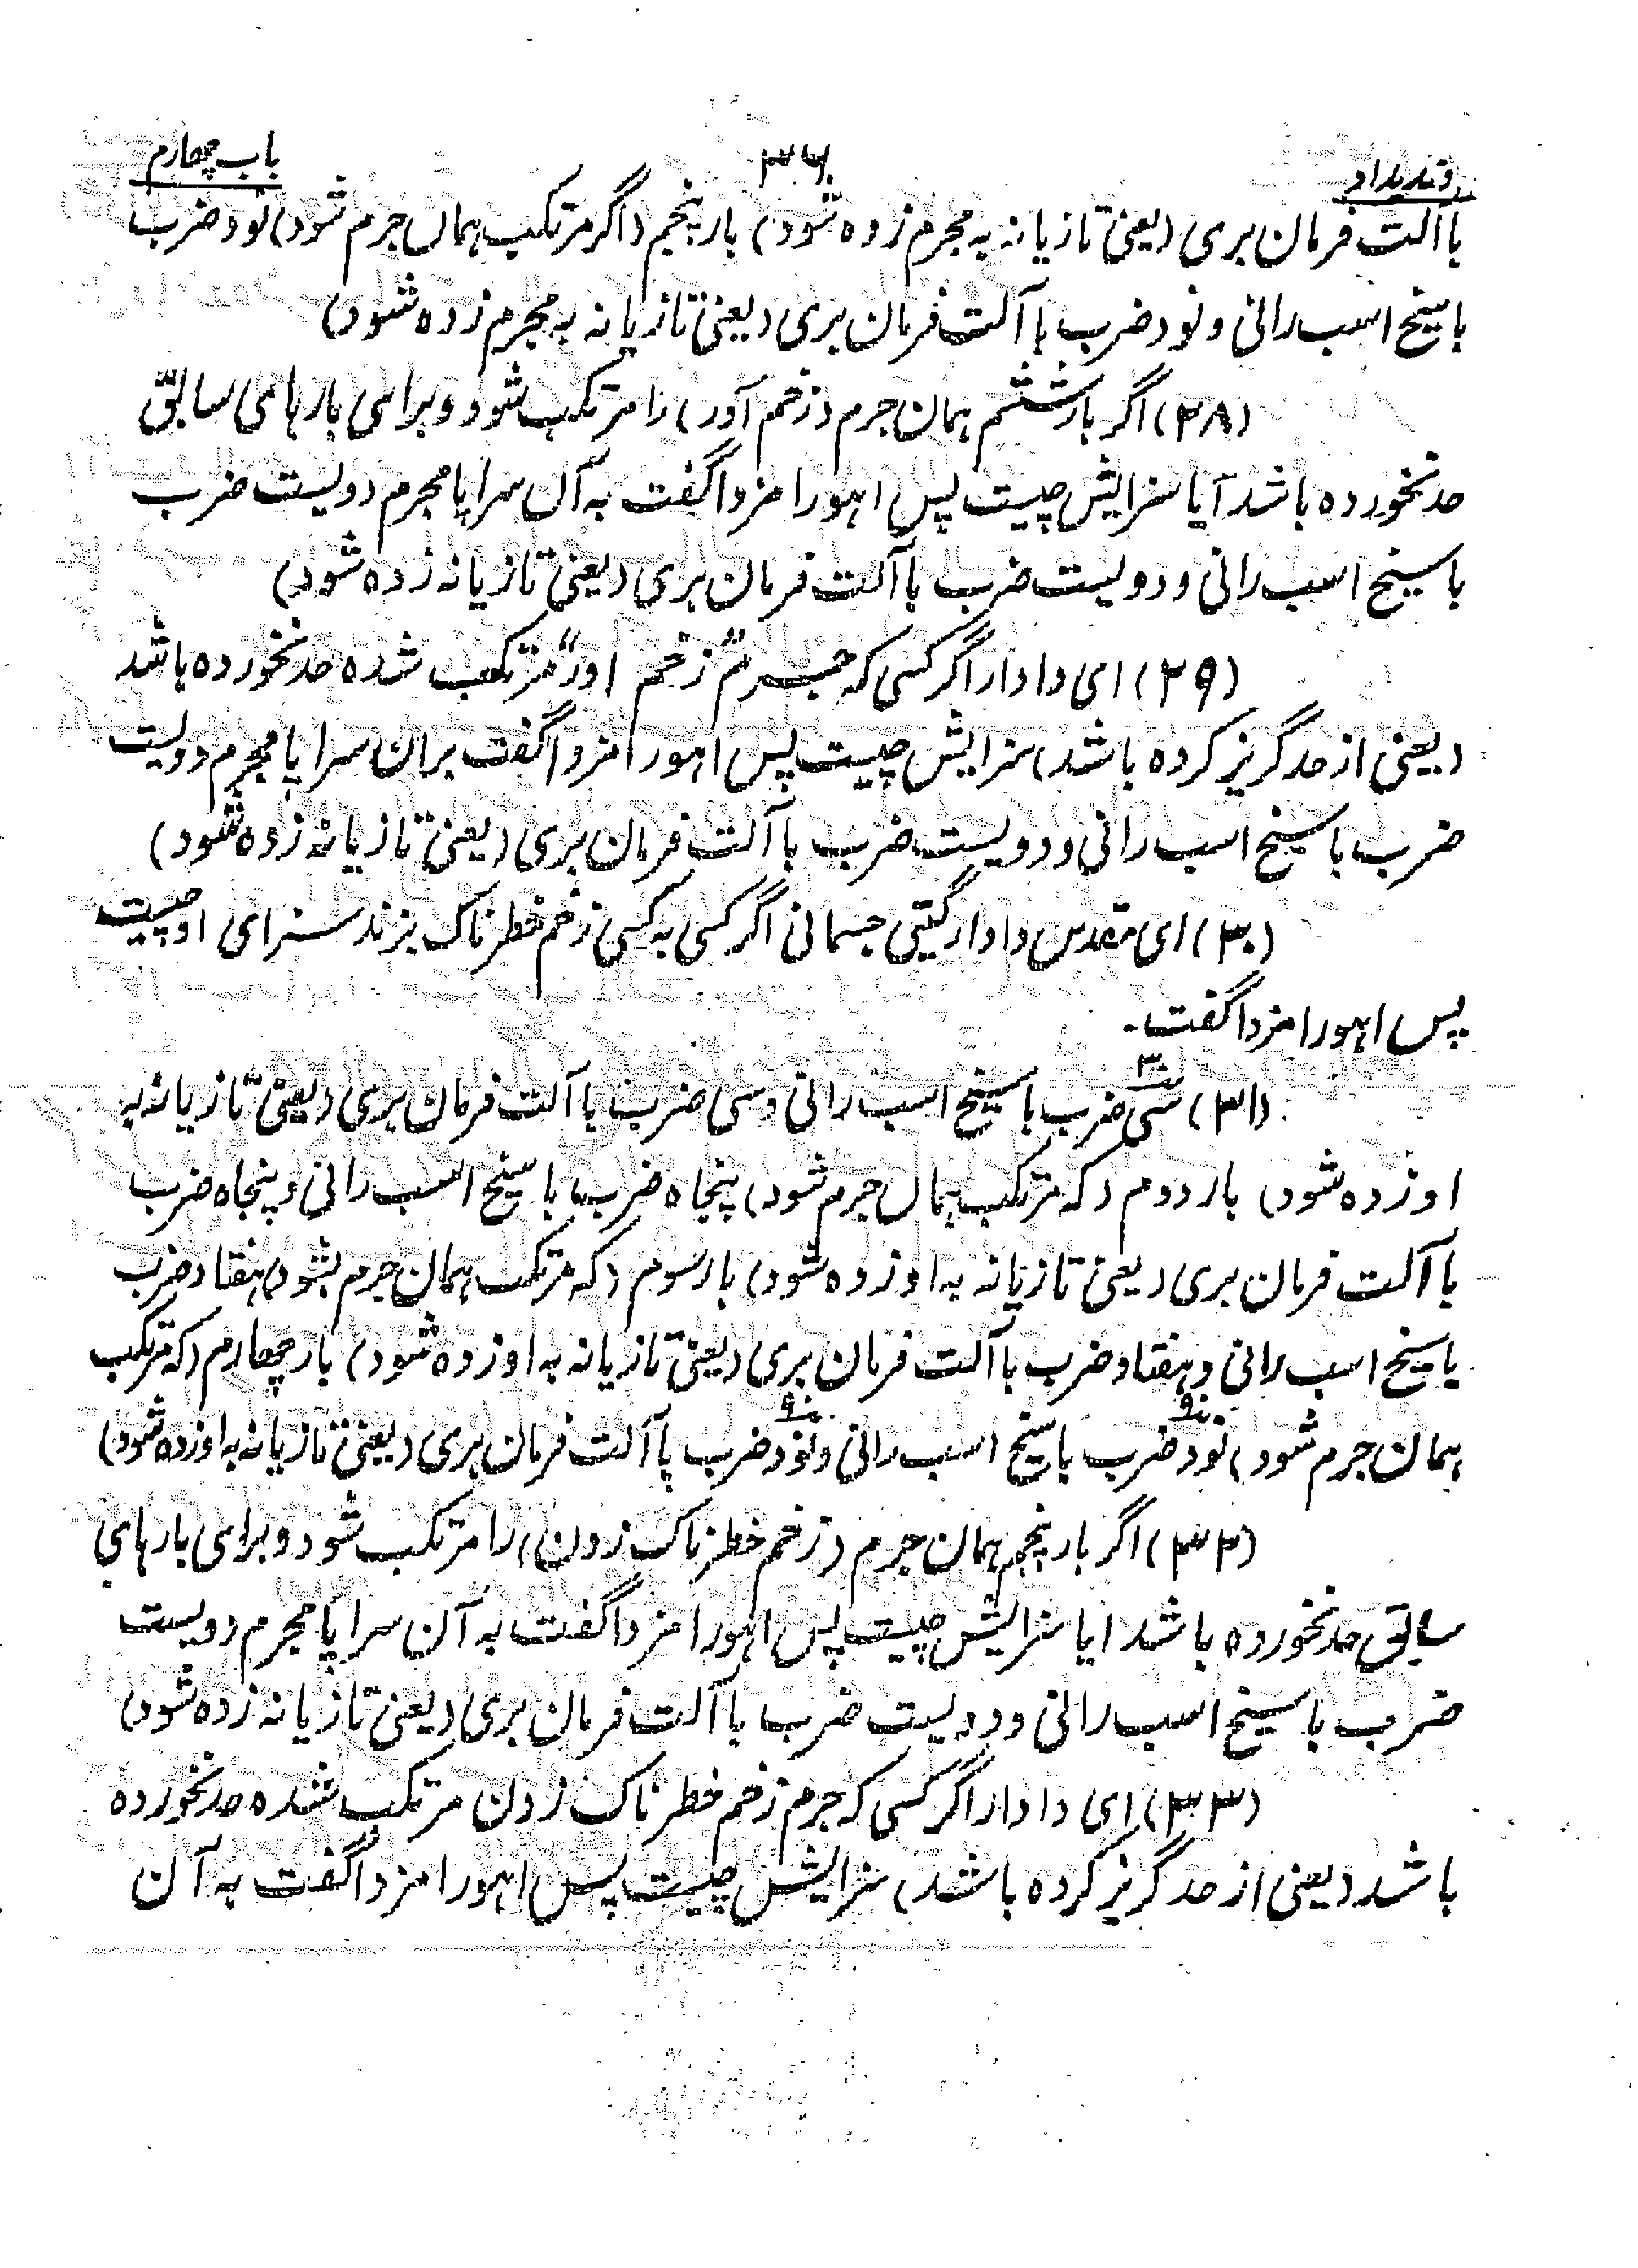 وندیداد ۳۶ باب چهارم
با آلت فرمان بری (یعنی تازیانه به مجرم زده شود) بار پنجم (اگر مرتکب همان جرم شود) نود ضرب
با سیخ اسب رانی و نود ضرب با آلت فرمان بری (یعنی تازیانه به مجرم زده شود)
(۲۸) اگر بار ششم همان جرم (زخم آور) را مرتکب شود و برای بارهای سابق
حد نخورده باشد آیا سزایش چیست پس اهورا مزدا گفت به آن سراپا مجرم دویست ضرب
با سیخ اسب رانی و دویست ضرب با آلت فرمان بری (یعنی تازیانه زده شود)
(۲۹) ای دادار اگر کسی که جرم "زخم اور" مرتکب شده حد نخورده باشد
(یعنی از حد گریز کرده باشد) سزایش چیست پس اهورا مزدا گفت بران سراپا مجرم دویست
ضرب با سیخ اسب رانی و دویست ضرب با آلت فرمان بری (یعنی تازیانه زده شود)
(۳۰) ای مقدس دادار گیتی جسمانی اگر کسی به کسی زخم خطرناک بزند سزای او چیست
پس اهورا مزدا گفت -
(۳۱) سی ۳۰ ضرب با سیخ اسب رانی و سی ضرب با آلت فرمان بری (یعنی تازیانه به
او زده شود) بار دوم (که مرتکب همان جرم شود) پنجاه ضرب با سیخ اسب رانی و پنجاه ضرب
با آلت فرمان بری (یعنی تازیانه به او زده شود) بار سوم (که مرتکب همان جرم بشود) هفتاد ضرب
با سیخ اسب رانی و هفتاد ضرب با آلت فرمان بری (یعنی تازیانه به او زده شود) بار چهارم (که مرتکب
همان جرم شود) نود ۹۰ ضرب با سیخ اسب رانی و نود ۹۰ ضرب با آلت فرمان بری (یعنی تازیانه به او زده شود)
(۳۲) اگر بار پنجم همان جرم (زخم خطرناک زدن) را مرتکب شود و برای بارهای
سابق حد نخورده باشد ایا سزایش چیست پس اهورا مزدا گفت به آن سراپا مجرم دویست
ضرب با سیخ اسب رانی و دویست ضرب با آلت فرمان بری (یعنی تازیانه زده شود)
(۳۳) ای دادار اگر کسی که جرم زخم خطرناک زدن مرتکب شده حد نخورده
باشد (یعنی از حد گریز کرده باشد) سزایش چیست پس اهورا مزدا گفت به آن